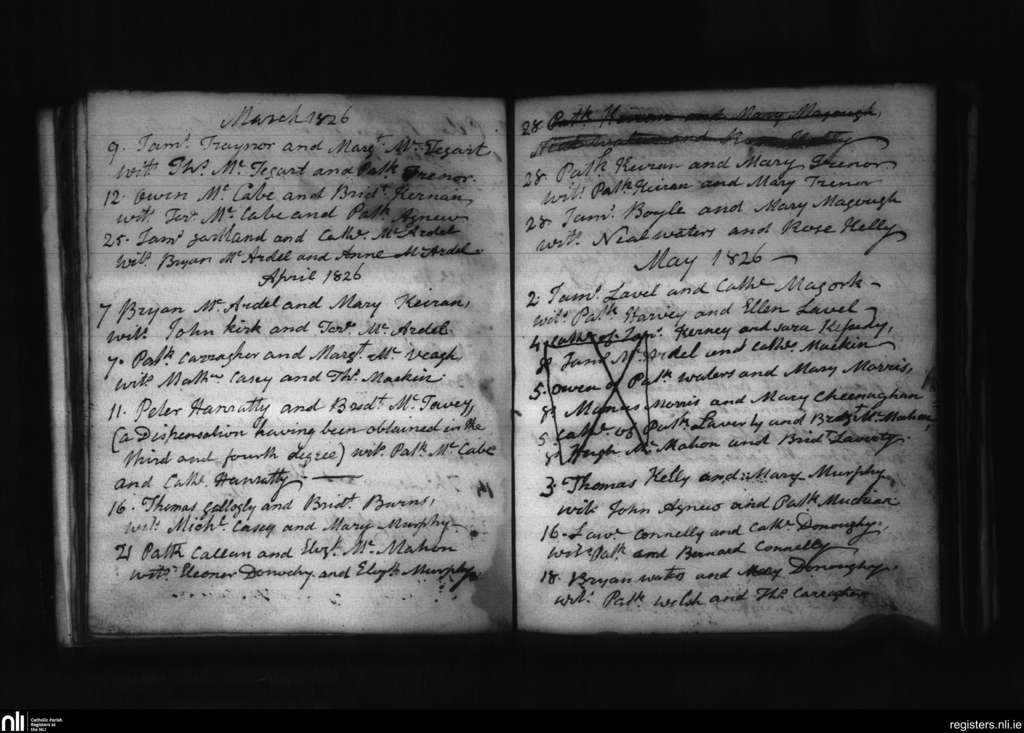 March 1826
9. Jams. Traynor and Margt. Mc. Tegart
witt. Ths. Mc. Tegart and Patk Trenor.
12. Owen Mc. Cabe and Bridt. Kernan,
wits. Terc. Mc. Cabe and Patk Agnew
25. Jams. Gartland and Cathe. Mc Ardel
wits. Bryan Mc. Ardel and Anne Mc Ardel.
April 1826
7 Bryan Mc. Ardel and Mary Keiran,
wits. John Kirk and Terc. Mc. Ardel
7. Patk. Carragher and Margt. Mc Veagh
wits Matw. Casey and Ths. Mackin
11. Peter Hanratty and Bridt. Mc. Tavey,
(a Dispensation having been obtained in the
third and fourth degree) wits. Patk. Mc. Cabe
and Cathe. Hanratty
16. Thomas Gollogly and Bridt. Burns,
wits. Michl. Casey and Mary Murphy
21 Patk Callan and Elizh. Mc. Mahon
wits. Eleoner Donochy and Elizh. Murphy.
28 Patk Keiran and Mary Magough,
Neal Waters and Rose Kelly
28. Patk Keiran and Mary Trenor
wits. Patk Keiran and Mary Trenor
28 Jams. Boyle and Mary Magough
witts. Neal Waters and Rose Kelly
May 1826
2. Jams. Lavel and Cathe Magork
wits. Patk. Harvey and Ellen Lavel
4 Cathe. of Jams. Kerney and Sara Kefady,
Jams Mc. Ardel and Cathe. Mackin
5. Owen of Patk Waters and Mary Morris,
Morris and Mary Cheenaghan
5 Cathe. of Patk Laverty and Bridt Mc. Mahon,
Hugh Mc Mahon and Bridt Laverty.
3. Thomas Kelly and Mary Murphy
wits John Agnew and Patk
16. Lawc Connelly and Cathe. Donoughy.
wits Patk and Bernard Connelly
18. Bryan Waters and Mary Donoughy.
wits. Patk Welsh and Ths Carragher
nli
Catholic Parish
Registers at
the NLI
registers.nli.ie